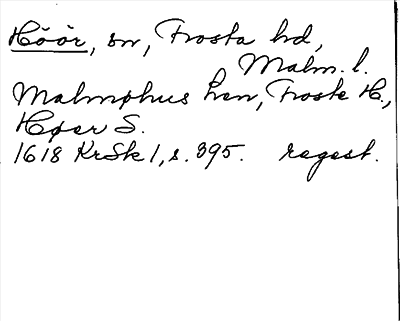 Höör, sn, Frosta hd,
Malm. l.
Malmøhus Len, Froste H.,
Høer S.
1618 KrSk 1, s. 395. regest.